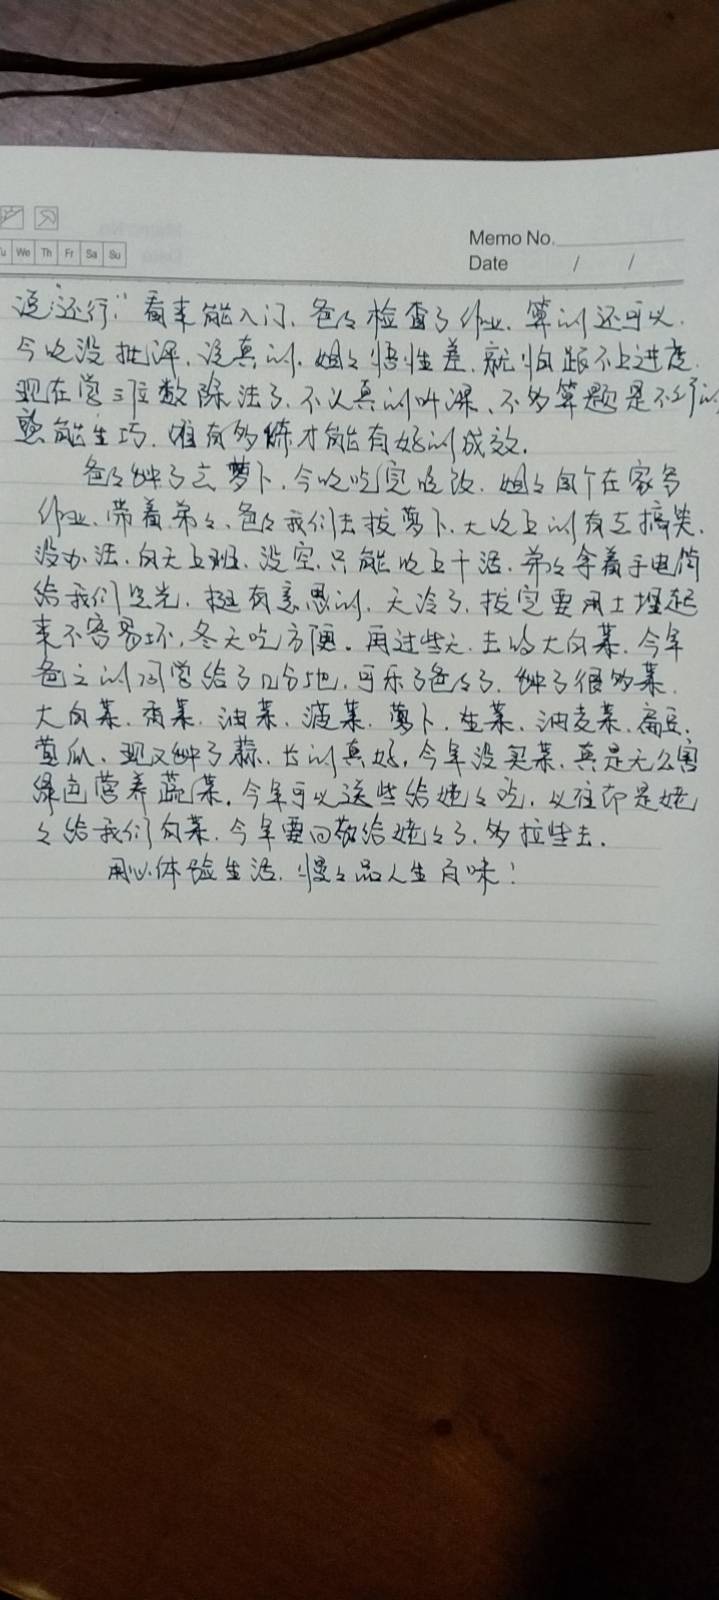 We Th Fr Sa Su
Memo No.
Date / /
说"还行"看来能入门.爸々检查了作业.算的还可以.
今晚没批评.说真的.姐々悟性差.就怕跟不上进度.
现在学三位数除法了.不认真的听课、不多算题是不行的
熟能生巧.唯有多练才能有好的成效.
爸々种了点萝卜.今晚吃完晚饭.姐々自个在家写
作业.带着弟々.爸々我们去拔萝卜.大晚上的有点搞笑.
没办法.白天上班.没空.只能晚上干活.弟々拿着手电筒
给我们照光.挺有意思的.天冷了.拔完要用土埋起
来不容易坏.冬天吃方便.再过些天.去的大白菜.今年
爸々的同学给了几分地.可乐了爸々了.种了很多菜.
大白菜.香菜.油菜.菠菜.萝卜.生菜.油麦菜.扁豆.
黄瓜.现又种了蒜.长的真好.今年没买菜.真是无公害
绿色营养蔬菜.今年可以送些给姥々吃.以往都是姥
々给我们白菜.今年要回敬给姥々了.多拉些去.
用心体验生活.慢々品人生百味!